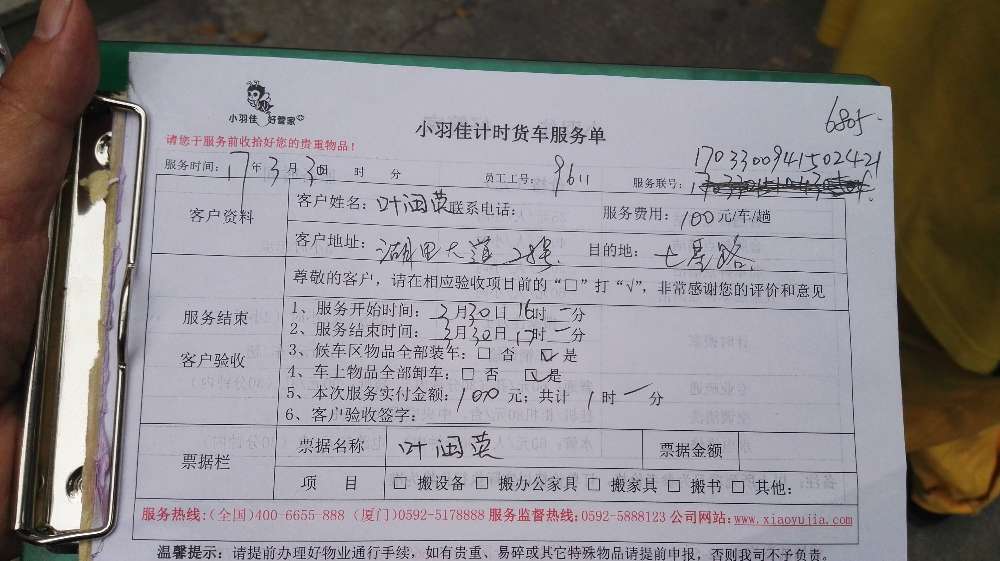 6805
小羽佳 好管家
小羽佳计时货车服务单
请您于服务前收拾好您的贵重物品！
服务时间：17年3月30日 时 分 员工工号：9611 服务联号：1703300941502421
客户资料
客户姓名：叶闽荣 联系电话： 服务费用：100元/车/趟
客户地址：湖里大道28号 目的地：七星路
尊敬的客户，请在相应验收项目前的“□”打“√”，非常感谢您的评价和意见
服务结束
客户验收
1、服务开始时间：3月30日16时一分
2、服务结束时间：3月30日17时一分
3、候车区物品全部装车：□ 否 ☑ 是
4、车上物品全部卸车：□ 否 ☑ 是
5、本次服务实付金额：100元；共计 1 时 一 分
6、客户验收签字：
票据栏
票据名称 叶闽荣 票据金额
项 目 □ 搬设备 □ 搬办公家具 □ 搬家具 □ 搬书 □ 其他：
服务热线：(全国)400-6655-888 (厦门)0592-5178888 服务监督热线：0592-5888123 公司网站：www.xiaoyujia.com
温馨提示：请提前办理好物业通行手续，如有贵重、易碎或其它特殊物品请提前申报，否则我司不予负责。